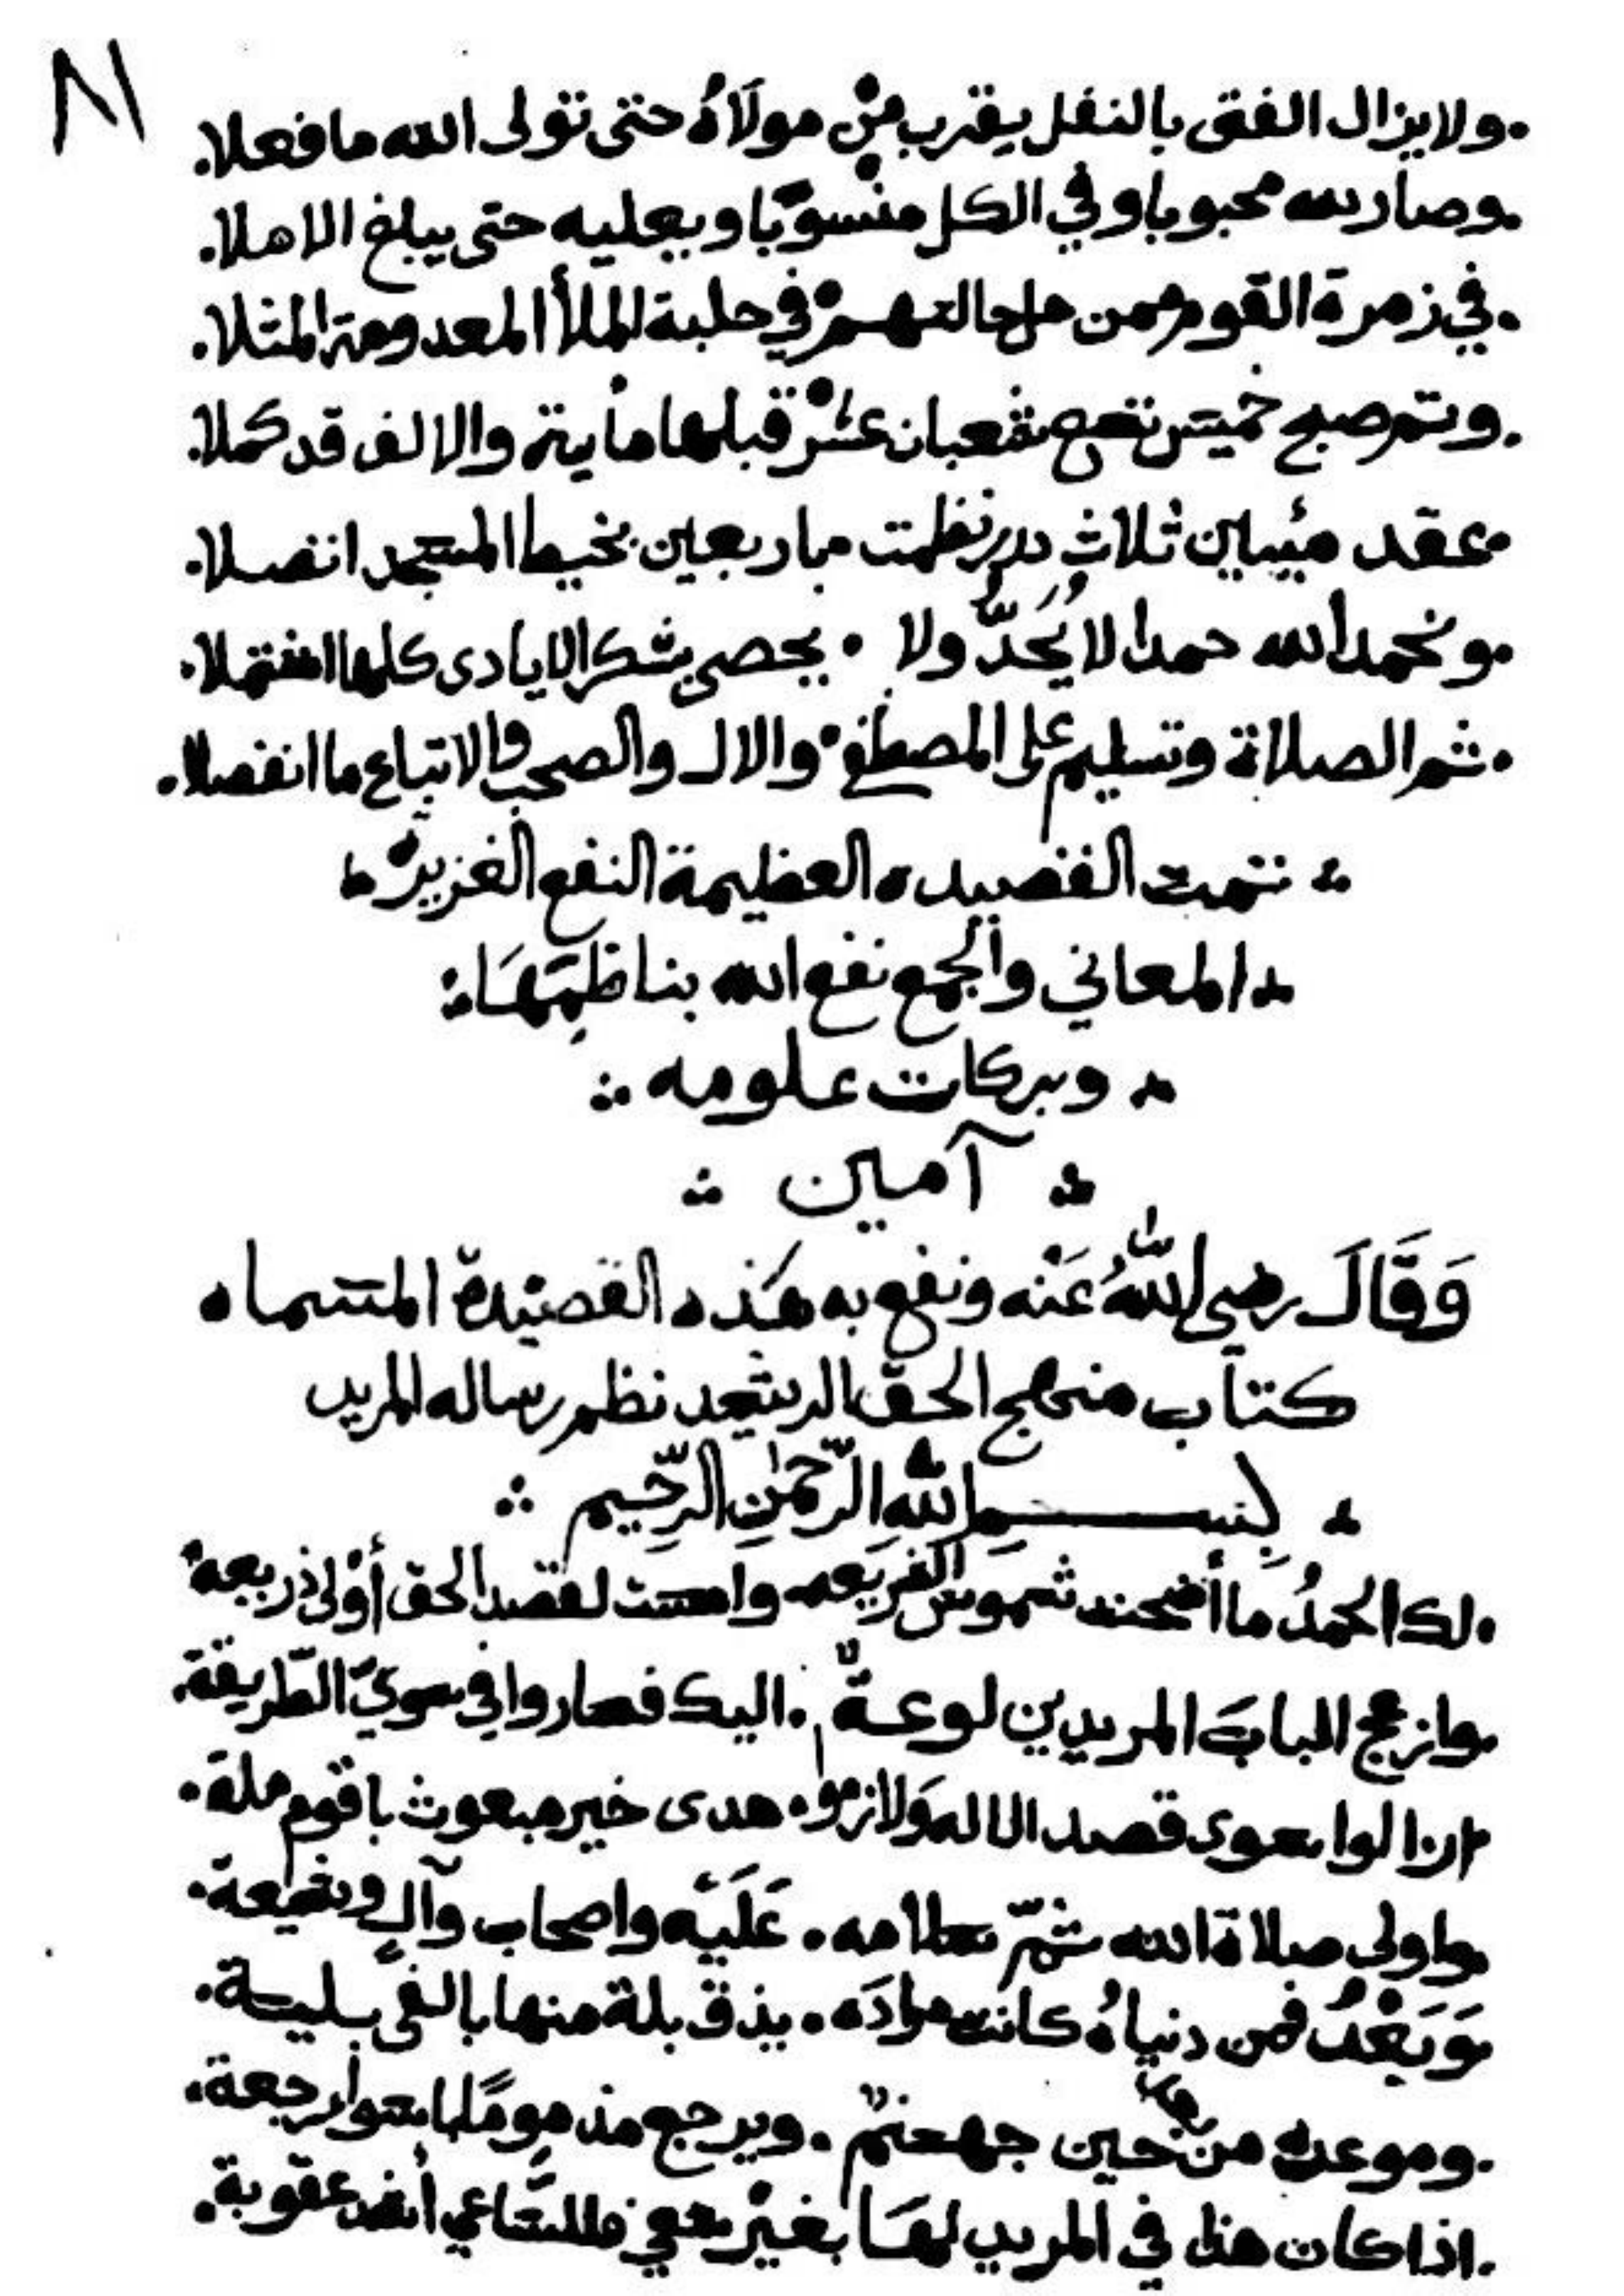 ٨١
.ولا يزال الفتى بالنفل يقرب من مولاه حتى تولى الله ما فعلا.
.وصار لله محبوبا وفي الكل منسوبا ويعليه حتى يبلغ الاهلا.
.في زمرة القوم ممن حل حالتهم في حلبة الملأ المعدومة المثلا.
.وتم صبح خميس تسع شعبان عشر قبلها ماية والالف قد كملا.
.عقد مئين ثلاث درر نظمت باربعين بخيط المسجد انفصلا.
.ونحمد الله حمدا لا يُحَدُّ ولا . يحصى بشكر الايادى كلها اشتملا.
.ثم الصلاة وتسليم على المصطفى والال والصحب والاتباع ما انفصلا.
تمت القصيده العظيمة النفع الغزيرة
المعاني والجمع نفع الله بناظِمِهَا
وبركات علومه
آمين
وَقَالَ رضي اللهُ عَنْه ونفع به هَذه القصيْدة المسماه
كتاب منهج الحق الرشيد نظم رساله المريد
بِسمِ اللهِ الرَّحْمٰنِ الرَّحِيم
.لك الحمدُ ما أضحت شموس الشريعه واضحت لقصد الحق أوْلى ذريعه
.وازعج الباب المريدين لوعةٌ . اليك فصاروا في سويّ الطّريقة.
ازالوا سوى قصد الاله وَلازموا . هدى خير مبعوث باقوم ملة.
واولى صلاة الله ثمّ سلامه . عَلَيْه واصحاب وآلٍ وشيعة.
.وَبَعْدُ فمن دنياهُ كانت مرادَه . يذق بلة منها بالفى بلية.
.وموعده من حين جهنم . ويرجع مذموما لسوء رجعة.
.اذا كان هذا في المريد لهَا بغيْر سعي فللسّاعي أشد عقوبة.